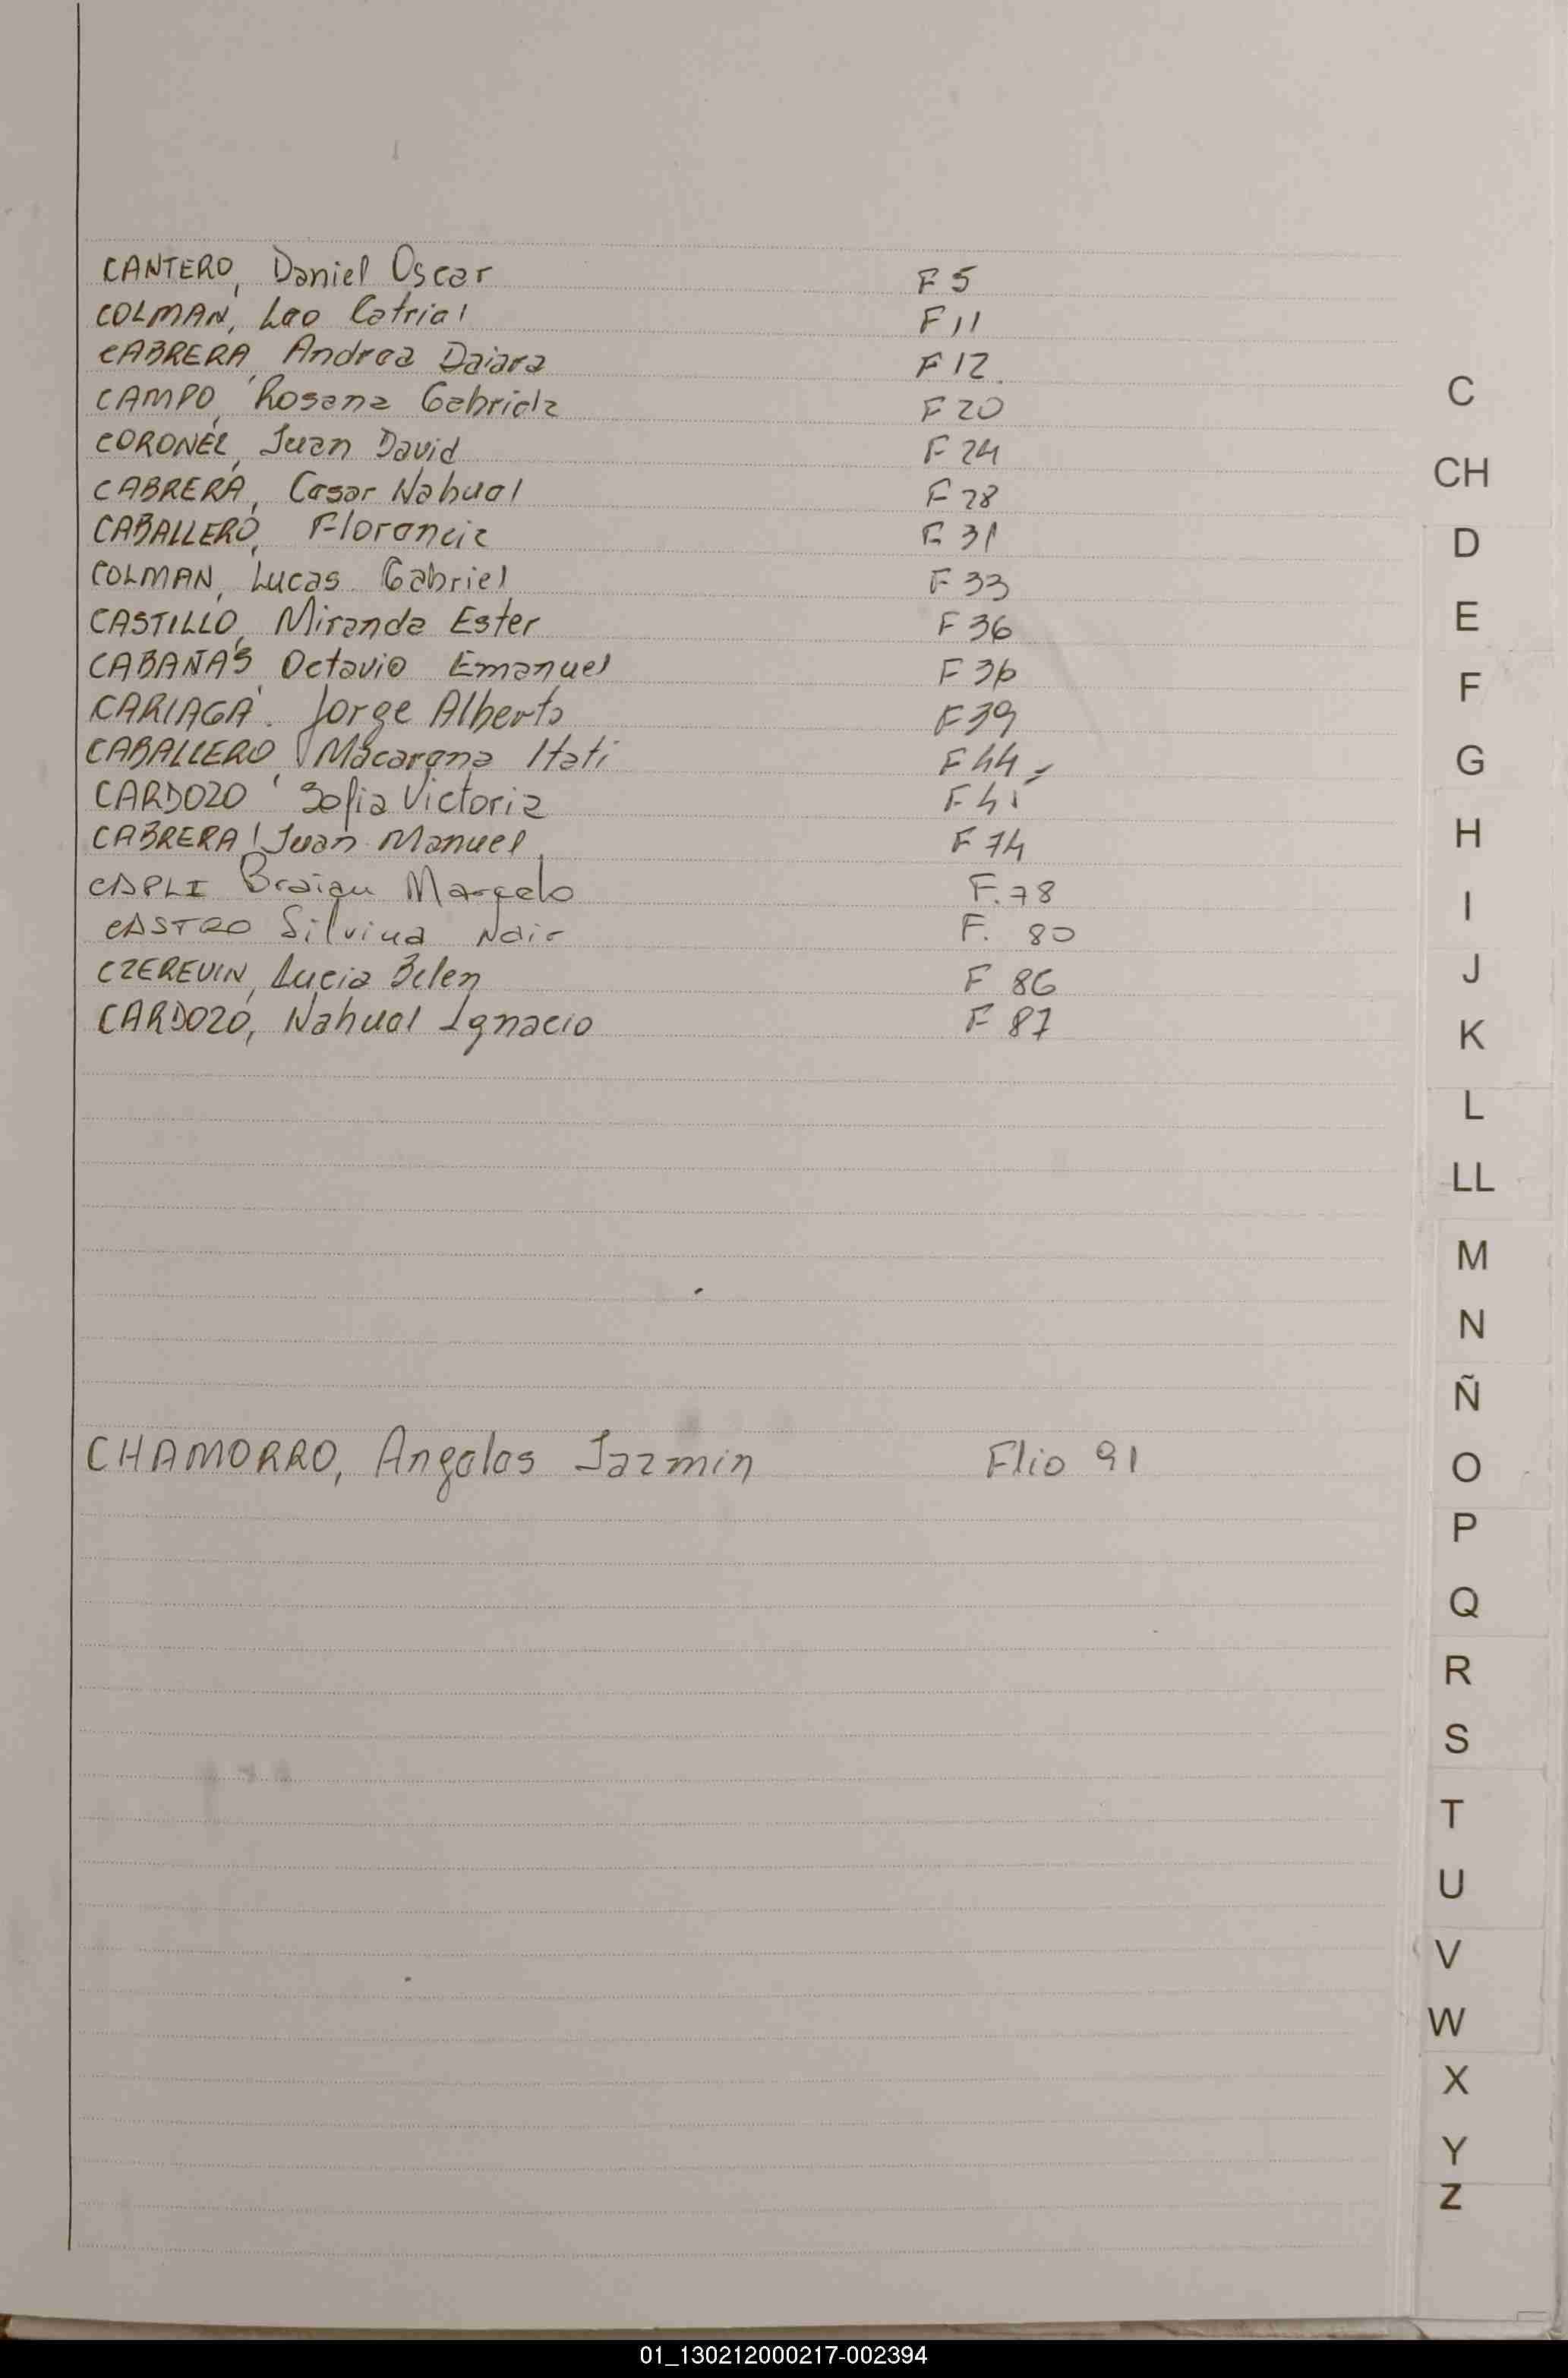 CANTERO, Daniel Oscar F 5
COLMAN, Leo Catriel F 11
CABRERA, Andrea Daiara F 12
CAMPO, Rosana Gabriela F 20
CORONEL, Juan David F 24
CABRERA, Cesar Nahuel F 28
CABALLERO, Florencia F 31
COLMAN, Lucas Gabriel F 33
CASTILLO, Miranda Ester F 36
CABAÑAS, Octavio Emanuel F 36
CARIAGA, Jorge Alberto F 39
CABALLERO, Macarena Itati F 44
CARDOZO, Sofia Victoria F 45
CABRERA, Juan Manuel F 74
Braian Marcelo F. 78
CASTRO Silvina Nair F. 80
CZEREVIN, Lucia Belen F 86
CARDOZO, Nahuel Ignacio F 87
CHAMORRO, Angeles Jazmin Flio 91
C
CH
D
E
F
G
H
I
J
K
L
LL
M
N
Ñ
O
P
Q
R
S
T
U
V
W
X
Y
Z
01_130212000217-002394